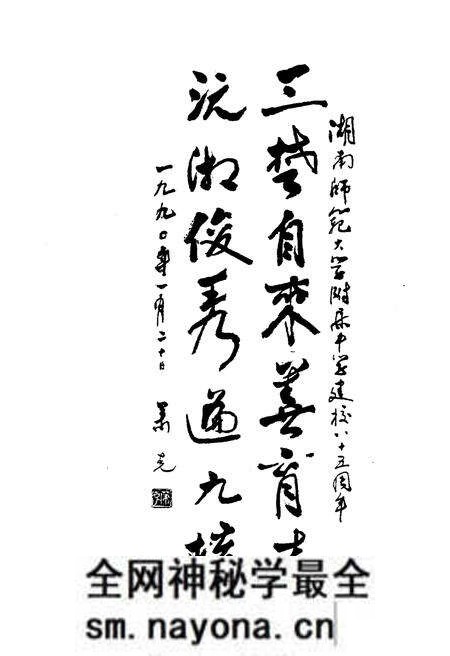 湖南师范大学附属中学建校八十五周年
三楚自来善育才
沅湘俊秀遍九
一九九〇年一月二十日
萧克
全网神秘学最全
sm.nayona.cn